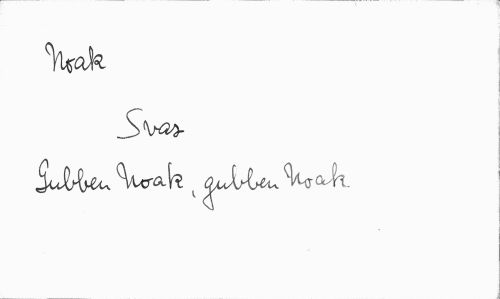 Noak
Svar
Gubben Noak, gubben Noak